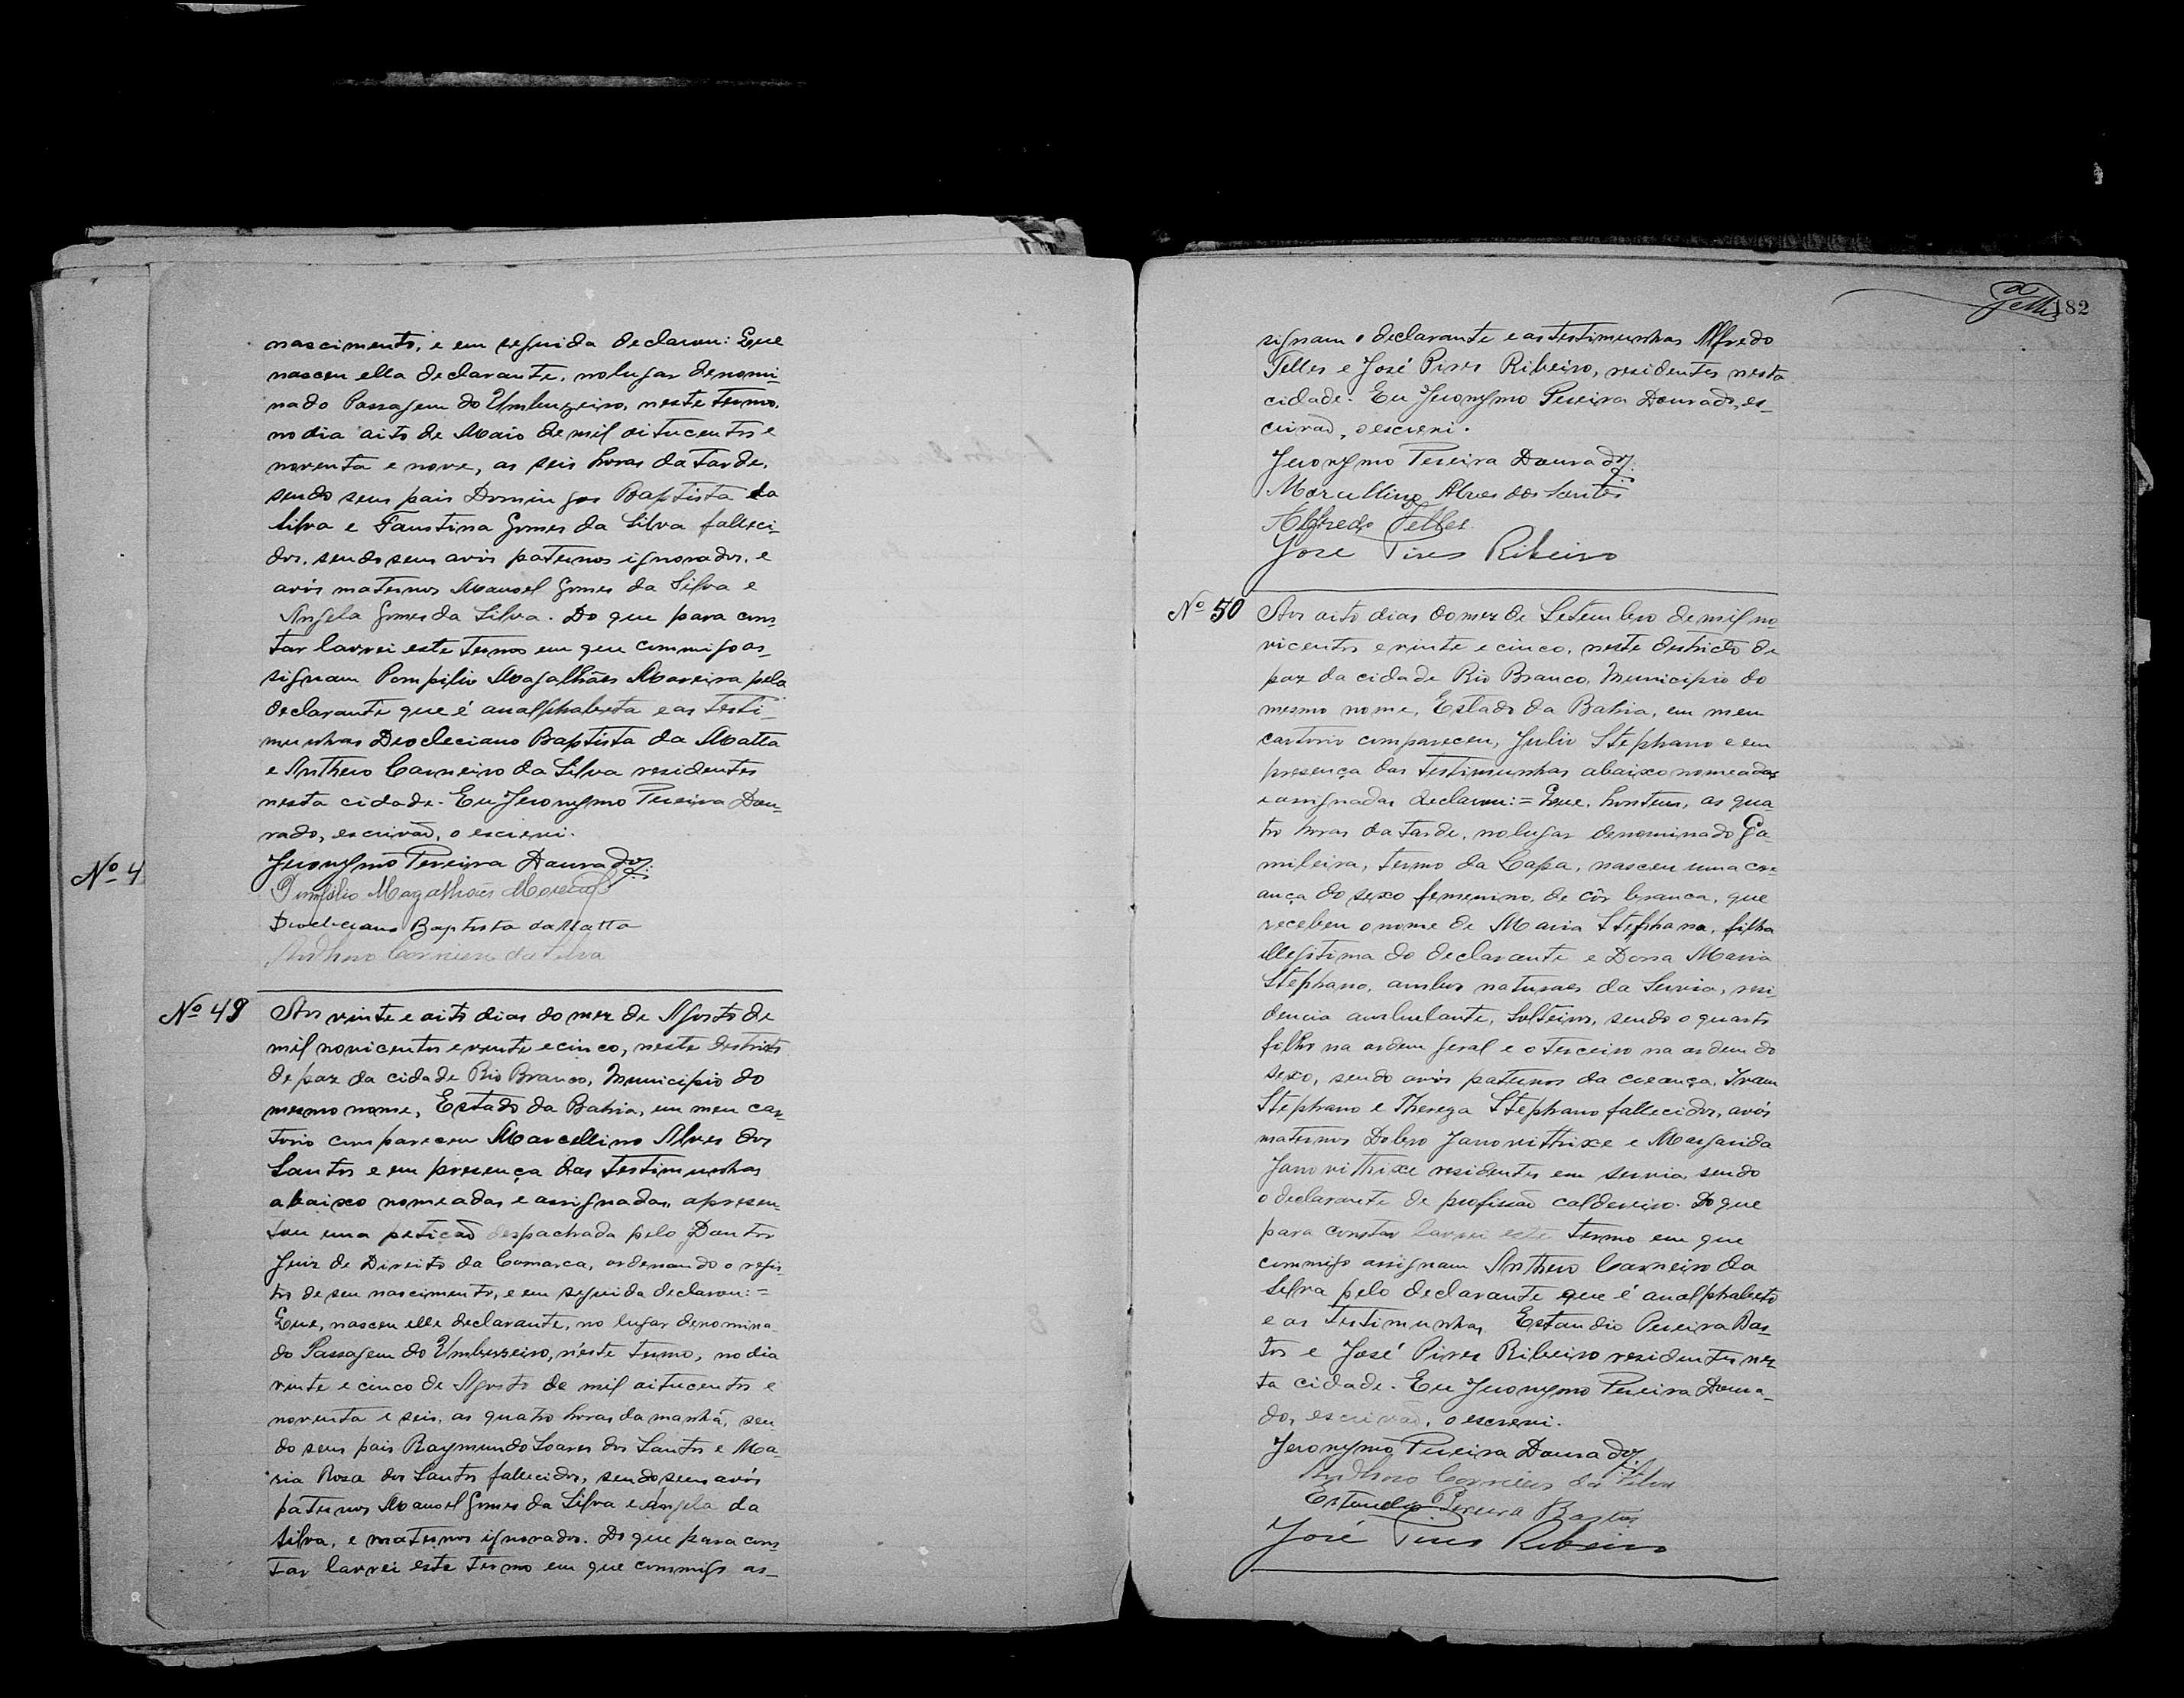 nascimento, e em seguida declarou: Que
nasceu ella declarante, no lugar denomi-
nado Passagem do Umbuzeiro, neste termo,
no dia oito de Maio de mil oitucentos e
noventa e nove, as seis horas da tarde,
sendo seus pais Domingos Baptista da
Silva e Faustina Gomes da Silva falleci-
dos, sendo seus avós paternos ignorados, e
avós maternos Manoel Gomes da Silva e
Angela Gomes da Silva. Do que para cons-
tar lavrei este termo em que commigo as-
signam Pompilio Magalhães Moreira pela
declarante que é analphabeta e as testi-
munhas Deocleciano Baptista da Matta
e Anthero Carneiro da Silva residentes
nesta cidade. Eu Jeronymo Pereira Dou-
rado, escrivão, o escrevi.
Jeronymo Pereira Dourado
Nº 4
Pompilio Magalhães Moreira
Deocleciano Baptista da Matta
Anthero Carneiro da Silva
Nº 49
Aos vinte e oito dias do mez de Agosto de
mil novicentos e vinte e cinco, neste districto
de paz da cidade Rio Branco, Municipio do
mesmo nome, Estado da Bahia, em meu car-
torio compareceu Marcellino Alves dos
Santos e em presença das testimunhas
abaixo nomeadas e assignadas, apresen-
tou uma petição despachada pelo Doutor
Juiz de Direito da Comarca, ordenando o regis-
tro de seu nascimento, e em seguida declarou: =
Que, nasceu elle declarante, no lugar denomina-
do Passagem do Umbuzeiro, n'este termo, no dia
vinte e cinco de Agosto de mil oitucentos e
noventa e seis, as quatro horas da manhã, sen-
do seus pais Raymundo Soares dos Santos e Ma-
ria Rosa dos Santos fallecidos, sendo seus avós
paternos Manoel Gomes da Silva e Angela da
Silva, e maternos ignorados. Do que para cons-
tar lavrei este termo em que commigo as-
Telles
182
signam o declarante e as testimunhas Alfredo
Telles e José Pires Ribeiro, residentes nesta
cidade. Eu Jeronymo Pereira Dourado, es-
crivão, o escrevi.
Jeronymo Pereira Dourado
Marcellino Alves dos Santos
Alfredo Telles
José Pires Ribeiro
Nº 50
Aos oito dias do mez de Setembro de mil no-
vicentos e vinte e cinco, neste districto de
paz da cidade Rio Branco, Municipio do
mesmo nome, Estado da Bahia, em meu
cartorio compareceu, Julio Stephano e em
presença das testimunhas abaixo nomeadas
e assignadas declarou: = Que, hontem, as qua-
tro horas da tarde, no lugar denominado Ga-
mileira, termo da Lapa, nasceu uma cre-
ança do sexo femenino, de côr branca, que
recebeu o nome de Maria Stephana, filha
illegitima do declarante e Dona Maria
Stephano, ambos naturaes da Servia, resi-
dencia ambulante, solteiros, sendo o quarto
filho na ordem geral e o terceiro na ordem do
sexo, sendo avós paternos da creança, Ivam
Stephano e Thereza Stephano fallecidos, avós
maternos Dobro Janovithixe e Margarida
Janovithixe residentes em Servia, sendo
o declarante de profissão caldereiro. Do que
para constar lavrei este termo em que
commigo assignam Anthero Carneiro da
Silva pelo declarante que é analphabeto
e as testimunhas Estandio Pereira Bas-
tos e José Pires Ribeiro residentes nes-
ta cidade. Eu Jeronymo Pereira Doura-
do, escrivão, o escrevi.
Jeronymo Pereira Dourado
Anthero Carneiro da Silva
Estandio Pereira Bastos
José Pires Ribeiro